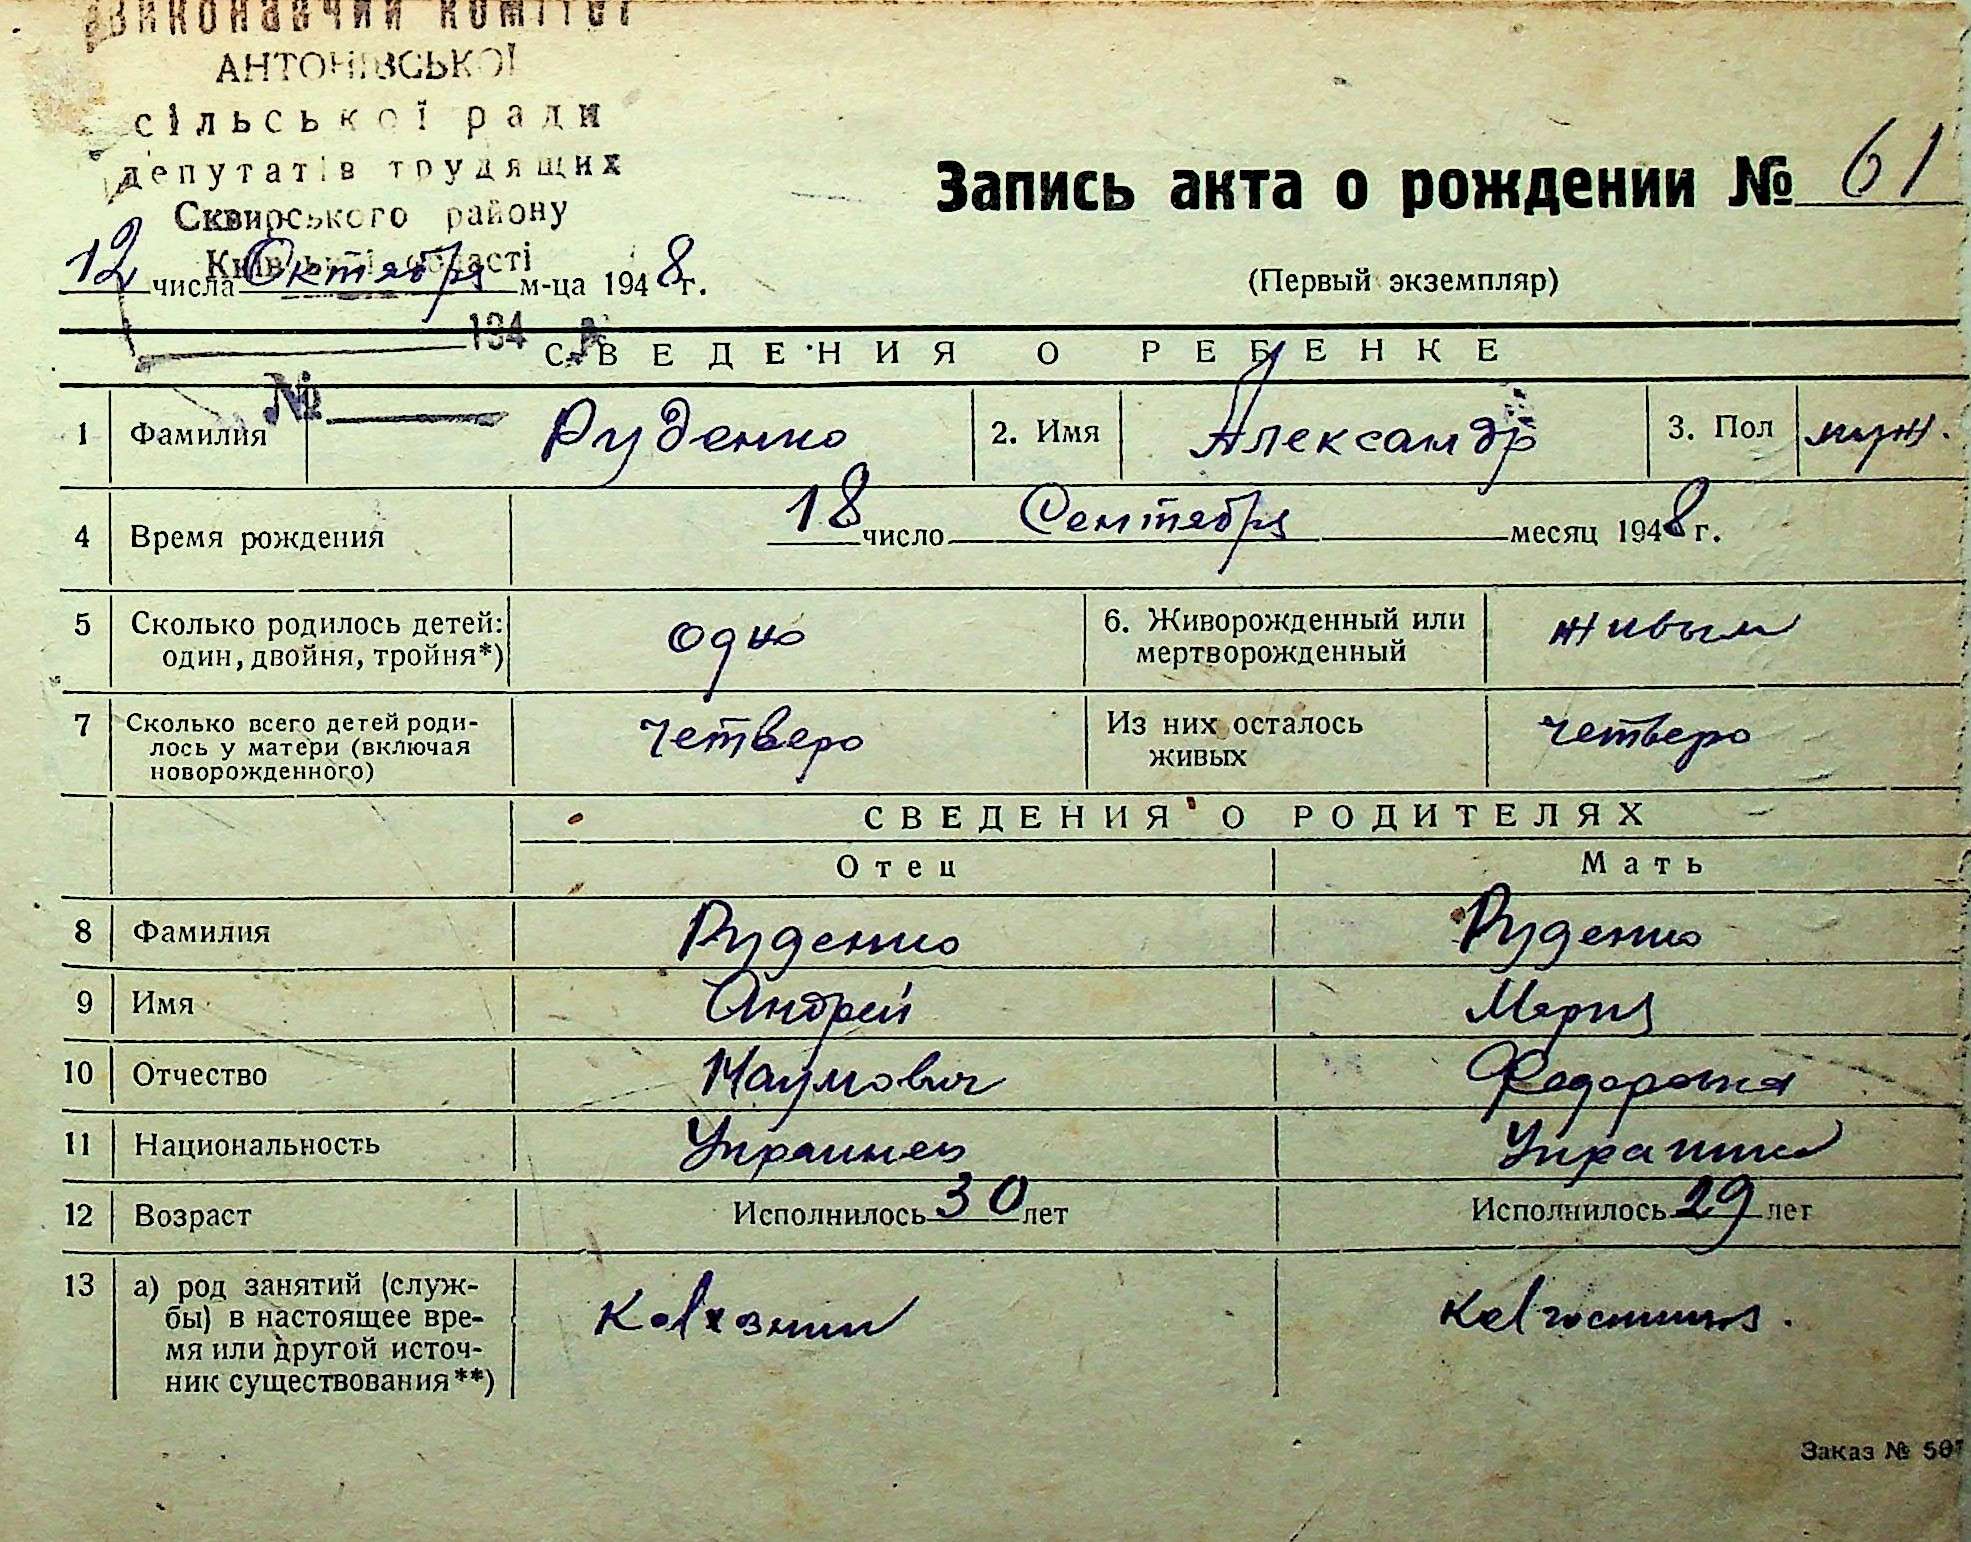 виконавчий комітет
АНТОНІВСЬКОЇ
сільської ради
депутатів трудящих
Сквирського району
Київської області
Запись акта о рождении № 61
12 числа Октября м-ца 1948 г.
(Первый экземпляр)
194 р.
№
СВЕДЕНИЯ О РЕБЕНКЕ
1 Фамилия Руденко 2. Имя Александр 3. Пол муж.
4 Время рождения 18 число Сентября месяц 1948 г.
5 Сколько родилось детей: одно 6. Живорожденный или живым
один, двойня, тройня*) мертворожденный
7 Сколько всего детей роди- четверо Из них осталось четверо
лось у матери (включая живых
новорожденного)
СВЕДЕНИЯ О РОДИТЕЛЯХ
Отец Мать
8 Фамилия Руденко Руденко
9 Имя Андрей Мария
10 Отчество Наумович Федоровна
11 Национальность Украинец Украинка
12 Возраст Исполнилось 30 лет Исполнилось 29 лет
13 а) род занятий (служ-
бы) в настоящее вре- Колхозник
мя или другой источ-
ник существования**)
Заказ № 507